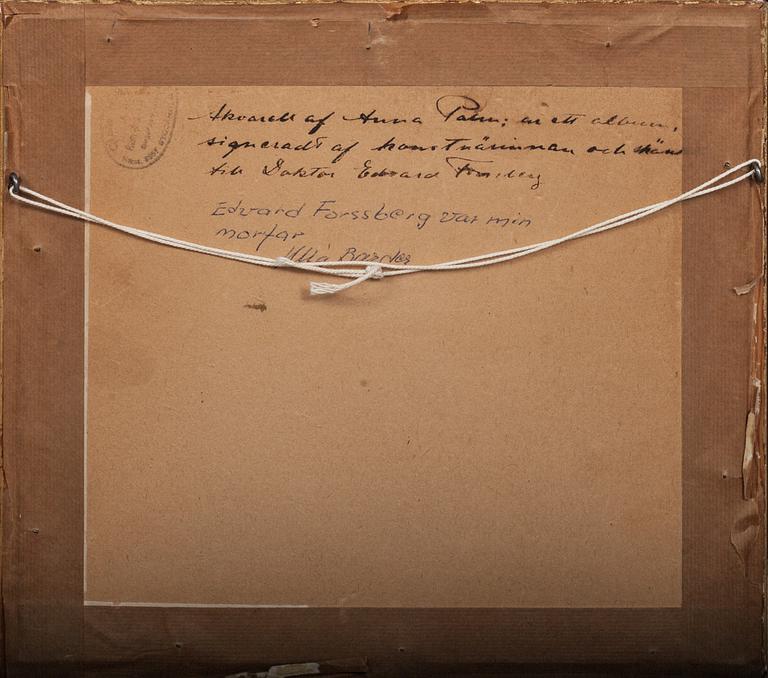 Akvarell af Anna Palm; ur ett album,
signeradt af konstnärinnan och skänkt
till Doktor Edvard Forssberg
Edvard Forssberg var min
morfar
Ulla